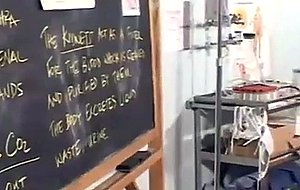 HPA
ENAL
ANDS
CO2
THE KIDNEY ACT AS A FILTER
FOR THE BLOOD WHICH IS CLEANED
AND PURGED BY THEM
THE BODY EXCRETES LIQUID
WASTE, URINE